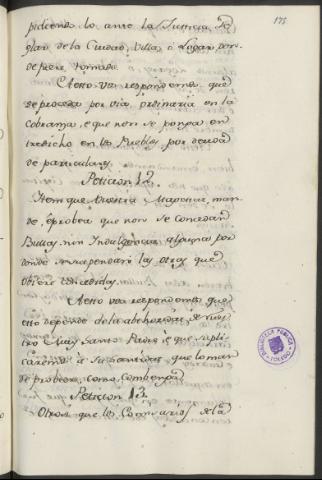 175
pidiendo lo ante la Justicia Se
glar de la Ciudad, Villa, o Lugar don
de fuere tomado.
A esto vos respondemos que
se proceda por via ordinaria en la
cobranza, e que non se ponga en
tredicho en los Pueblos por deuda
de particulares.
Peticion 12.
Item que Vuestra Magestad man
de, e probea que non se concedan
Bullas, nin Indulgencias algunas por
donde se suspendan las otras que
obiere concedidas.
A esto vos respondemos que
esto depende de la de nues
tro Muy Santo Padre, e que supli
caremos a Su Santidad, que lo man
de probeer, como combenga.
Peticion 13.
Otrosi que los Comisarios de la
BIBLIOTECA PUBLICA
TOLEDO